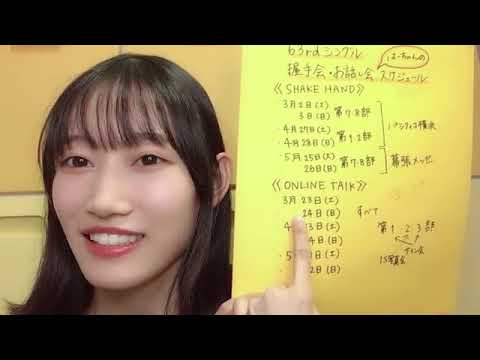 63rdシングル
握手会・お話し会 スケジュール
はーちゃんの
《SHAKE HAND》
3月2日(土)
3日(日) 第7.8部
・4月27日(土)
・4月28日(日) 第1.2部
パシフィコ横浜
・5月25日(土)
26日(日) 第7.8部
幕張メッセ
《ONLINE TALK》
3月23日(土)
24日(日) すべて
4 3日(土) 第1.2.3部
4日(日) サイン会
・5 1日(土) 1S写真会
・ 2日(日)